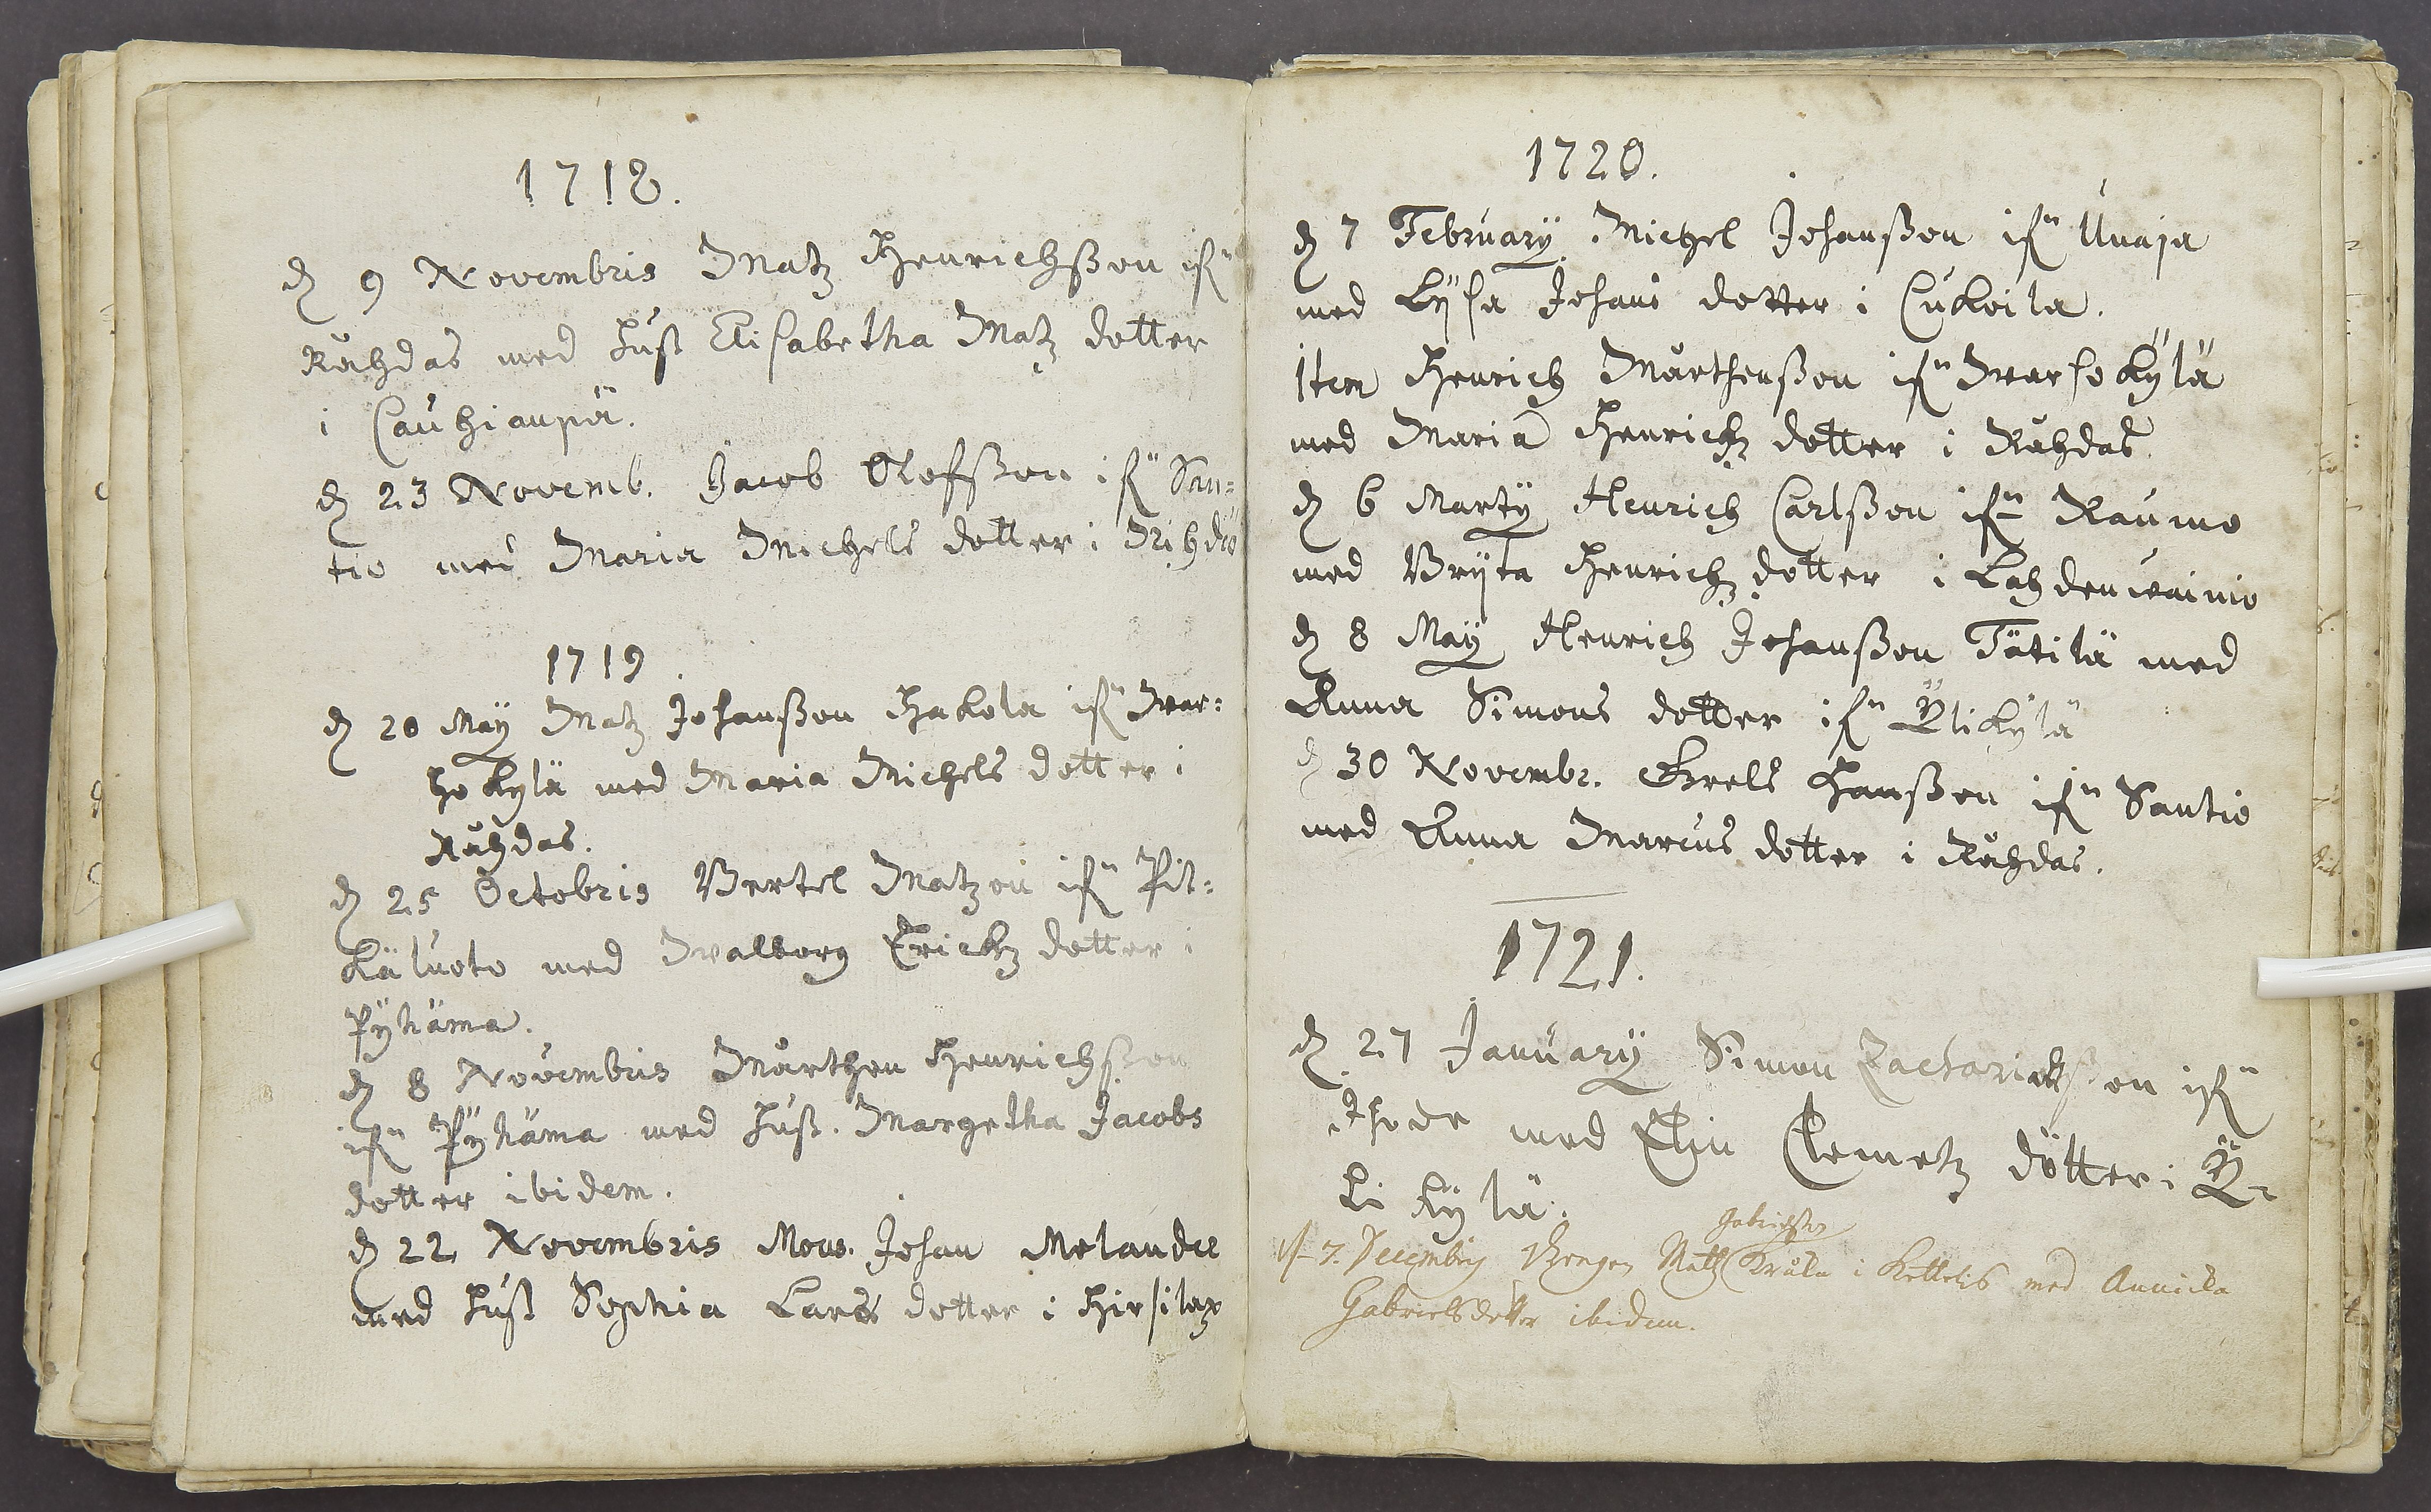 1718.
d 9 Novembris Matz Henrichsson ifrn
Råhdas med hust Elisabetha Matz dotter
i Cauhianpä.
d 23 Novemb. Jacob Olofsson ifrn San=
tio med Maria Michels dotter i Rihdas
1719.
d 20 Maÿ Matz Johansson Hakola ifrn War=
hokylä med Maria Michels dotter i
Råhdas.
d 25 Octobris Bertel Matzon ifrn Pit=
käluoto med Walborg Erichz dotter i
Pÿhäma.
d 8 Novembris Mårthen Henrichsson
ifrn Pÿhäma med hust. Margetha Jacobs
dotter ibidem.
d 22 Novembris Mons. Johan Melander
med hust Sophia Lars dotter i Hirsilax
1720.
d 7 Februarÿ Michel Johansson ifrn Unaja
med Lÿsa Johans dotter i Cukoila.
Item Henrich Mårthensson ifrn Warhokÿlä
med Maria Henrichz dotter i Råhdas.
d 6 Martÿ Henrich Carlsson ifrn Raumo
med Brÿta Henrichz dotter i Lahdenwainio
d 8 Maÿ Henrich Johansson Tätilä med
Anna Simons dotter ifrn Ÿlikÿlä
d 30 Novembr. Grels Hansson ifrn Santio
med Anna Marcus dotter i Råhdas.
1721.
d 27 Januarÿ Simon Zachariasson ifrn
Ihode med Elin Clemetz dotter i Ÿ=
likÿlä.
Gabrielsson
7. Decembris Drengen Matts Kråla i Kettelis med Annicka
Gabrielsdotter ibidem.